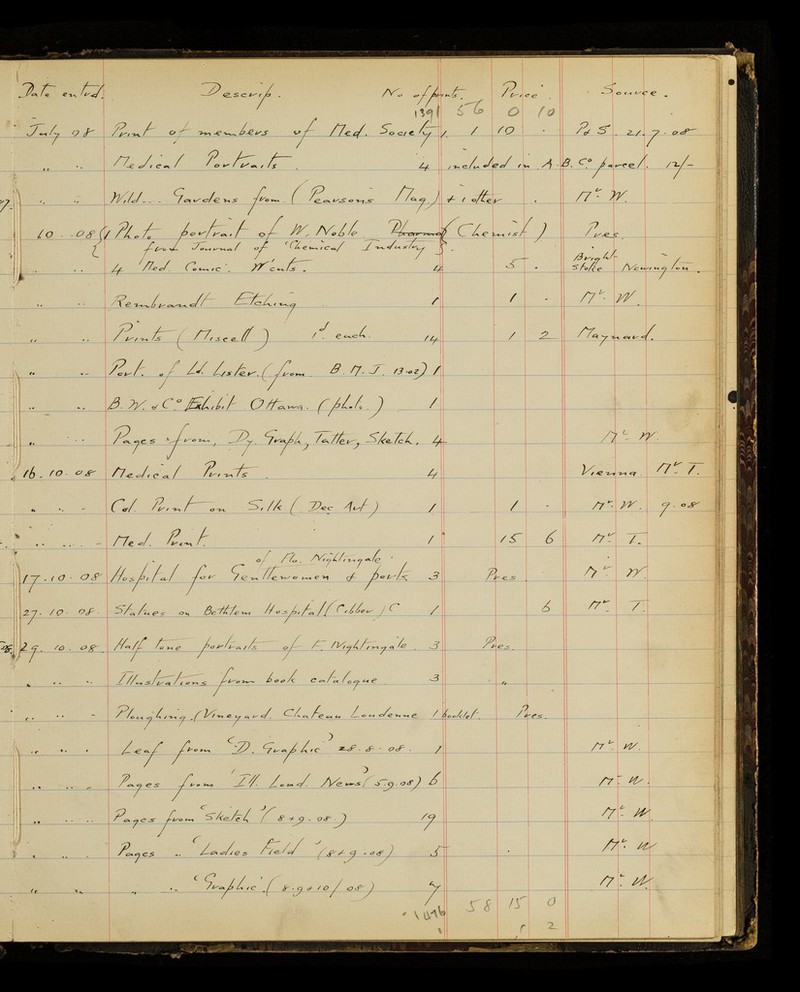 Date entrd. Descrip. No of prints. Price. Source.
1391 56 0 10
July 08 Print of members of Med. Society 1. 1 10 . P & S. 21.7.08
" " Medical Portraits. 4 included in A.B.Co parcel. 12/-
" " Wild... Gardens from (Pearson's Mag.) + 1 other . Mr. W.
10 . 08 1 Photo portrait of W. Noble (Chemist) Pres.
from Journal of 'Chemical Industry'.
" " 4 Med. Comic. W'cuts. 4 5 . Bright-
Stoke Newington.
" " Rembrandt Etching 1 1 - Mr. W.
" " Prints (Miscell) 1d each. 14 1 2 Maynard.
" " Port. of Ld. Lister. (from B.M.J. 13.02) 1
" " B.W. & Co Exhibit Ottawa. (photo.) 1
" " Pages from, Dy. Graph, Tatler, Sketch. 4 Mr. W.
16.10.08 Medical Prints. 4 Vienna Mr. T.
" " " Col. Print on Silk (Dec Art) 1 1 - Mr. W. 9.08
" " " Med. Print. 1 15 6 Mr. T.
of Flo. Nightingale.
17.10.08 Hospital for Gentlewomen & ports 3 Pres. Mr. W.
27.10.08. Statues on Bethlem Hospital (Cibber) C 1 6 Mr. T.
29.10.08. Half tone portraits of F. Nightingale. 3 Pres.
" " " Illustrations from book catalogue 3 "
" " " Ploughing. (Vineyard. Chateau Loudenne 1 booklet. Pres.
" " " Leaf from "D. Graphic" 28.8.08. 1 Mr. W.
" " " Pages from 'Ill. Lond. News' (5.9.08) 6 Mr. W.
" " " Pages from "Sketch" (8+9.08.) 19 Mr. W.
" " " Pages " "Ladies Field" (8+9.08) 5 Mr. W
" " " " "Graphic. (8.9+10/08) 7 Mr. W.
1476 58 15 0
1 2